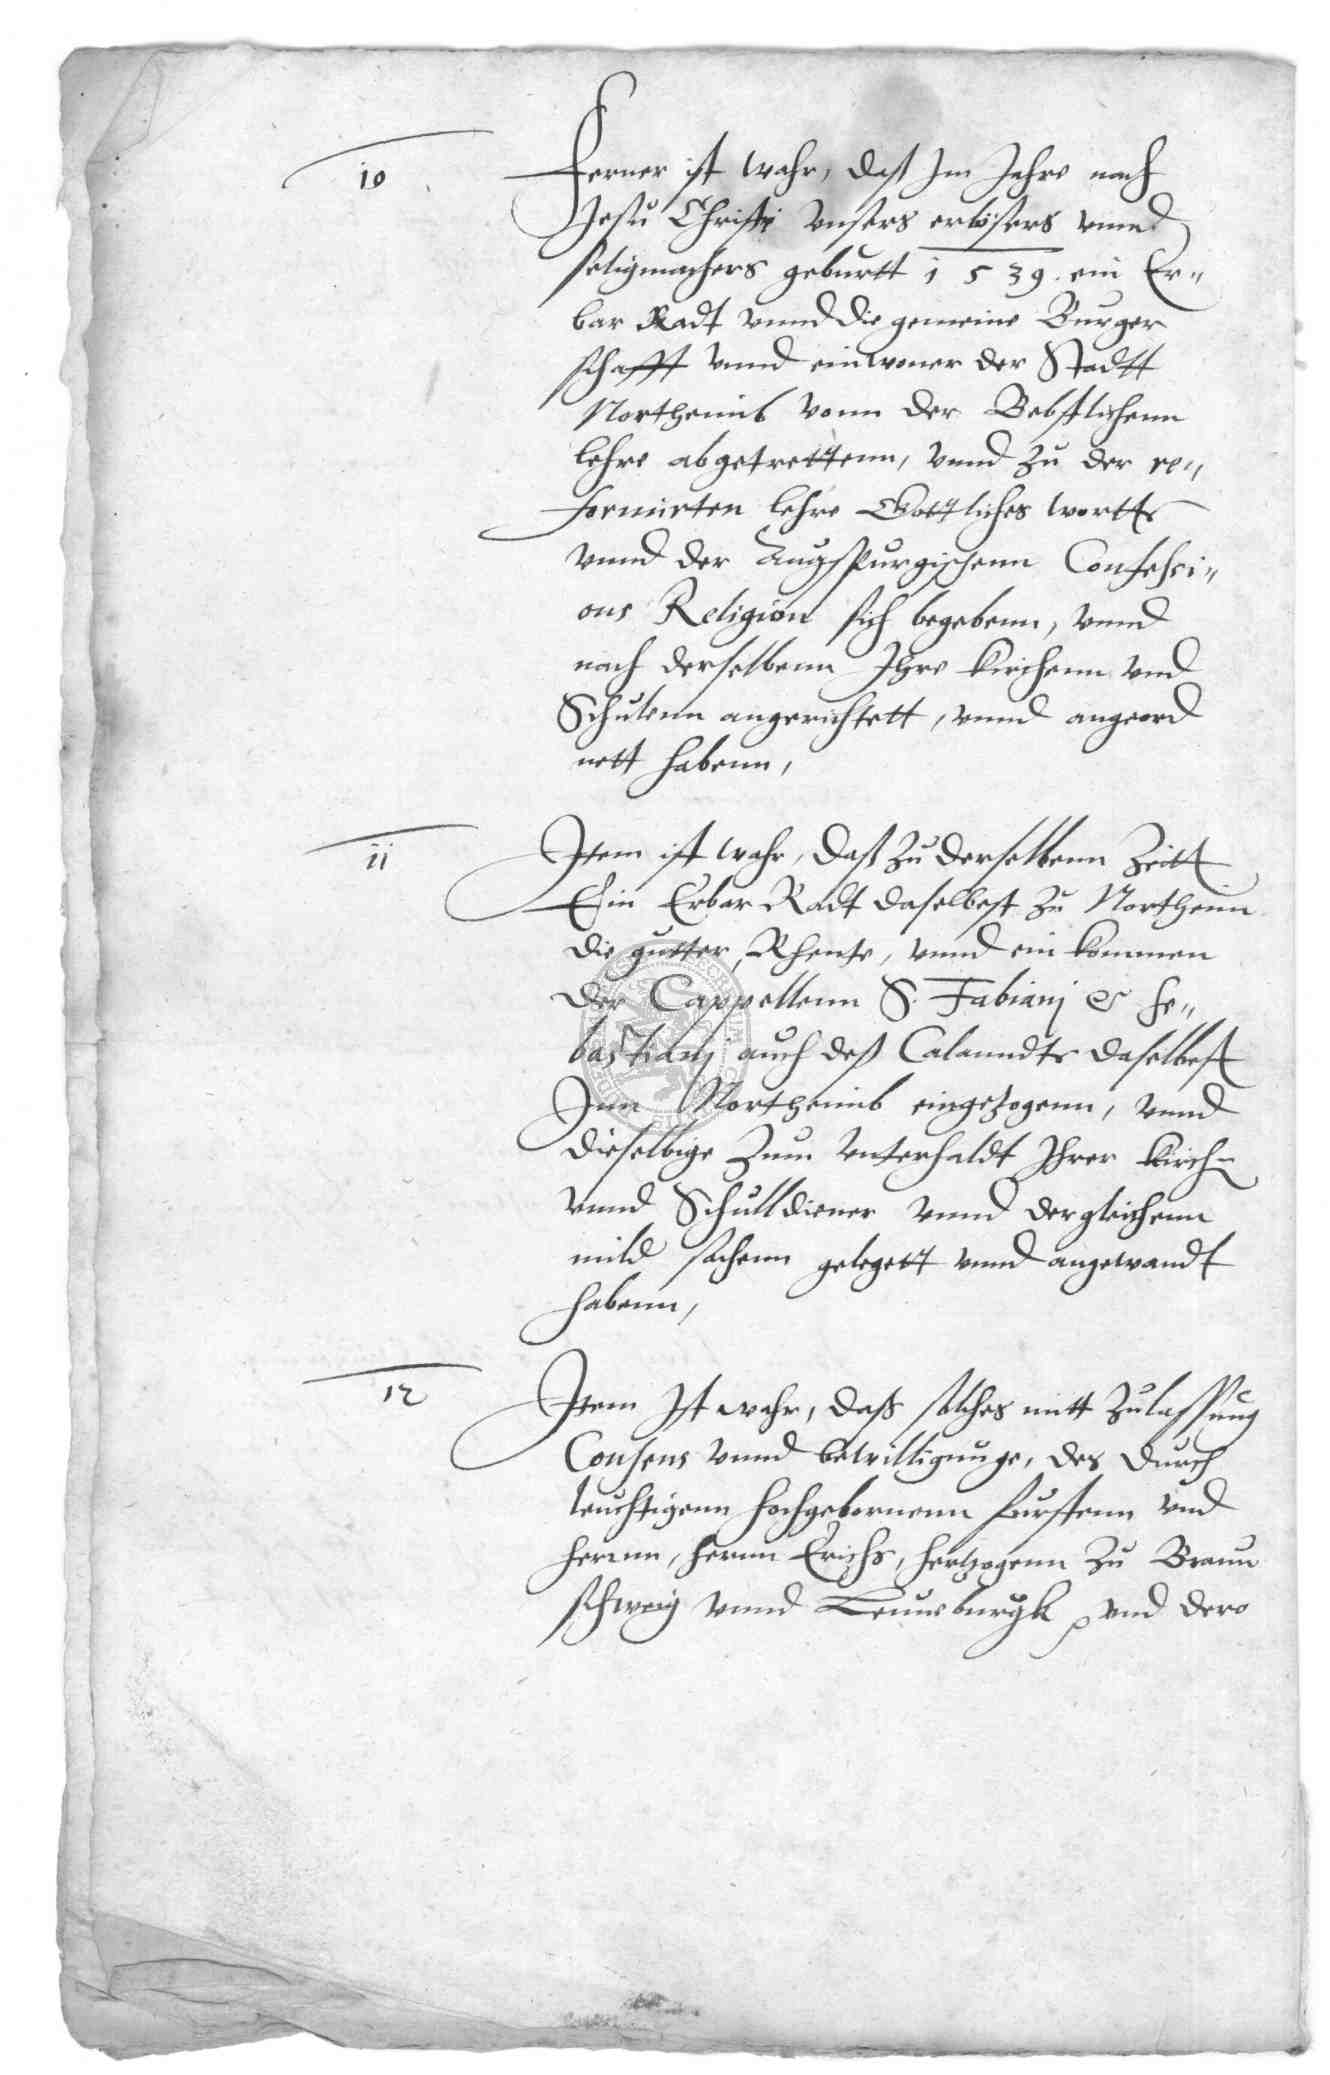 10
Ferner ist wahr, daß Im Jahre nach
Jesu Christi vnsers erlösers vnnd
seligmachers geburtt 1539. ein Er„
bar Radt vnnd die gemeine Burger
schafft vnnd einwoner der Stadtt
Northeimb vonn der Bebstlichenn
lehre abgetrettenn, vnnd zu der re„
formirten lehre Gottliches wortts
vnnd der Augspurgischenn Confessi„
ons Religion sich begebenn, vnnd
nach derselbenn Ihre kirchenn vnd
Schulenn angerichtett, vnnd angeord
nett habenn,
11
Item ist wahr, daß zu derselbenn Zeitt
Ein Erbar Radt daselbest zu Northeim
die gutter, Rhente, vnnd ein kommen
der Cappellenn S. Fabianj & Se„
bastianj auch deß Calanndts daselbest
Inn Northeimb eingezogenn, vnnd
dieselbige Zum vnterhaldt Ihrer kirch-
vnnd Schulldiener vnnd dergleichenn
mild sachenn gelegett vnnd angewandt
habenn,
12
Item Ist wahr, daß solches mitt Zulassung
Consens vnnd bewilligunge, des durch
leuchtigenn hochgebornenn furstenn vnd
hernn, hernn Erichs, hertzogenn zu Braun
schweig vnnd Leuneburgk vnd dero